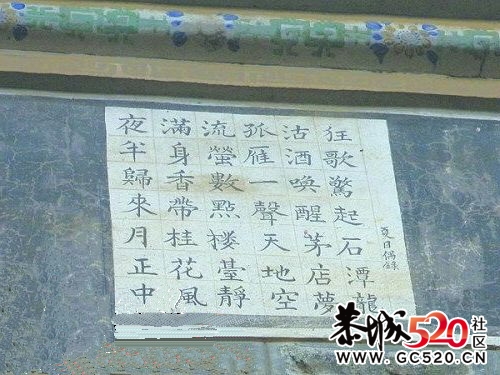 夜半歸來月正中
滿身香帶桂花風
流螢數點楼臺靜
孤雁一聲天地空
沽酒喚醒茅店夢
狂歌驚起石潭龍
夏日偶錄
恭城520社区
WWW.GC520.CN